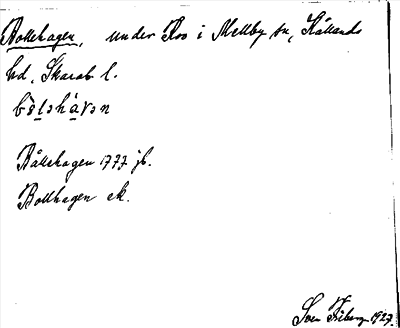 Bollehagen, under Roo i Mellby sn, Kållands
hd, Skarab. l.
bòləháγən
Bållehagen 1777 jb.
Bollhagen ek.
Sven Fiberg 1927.